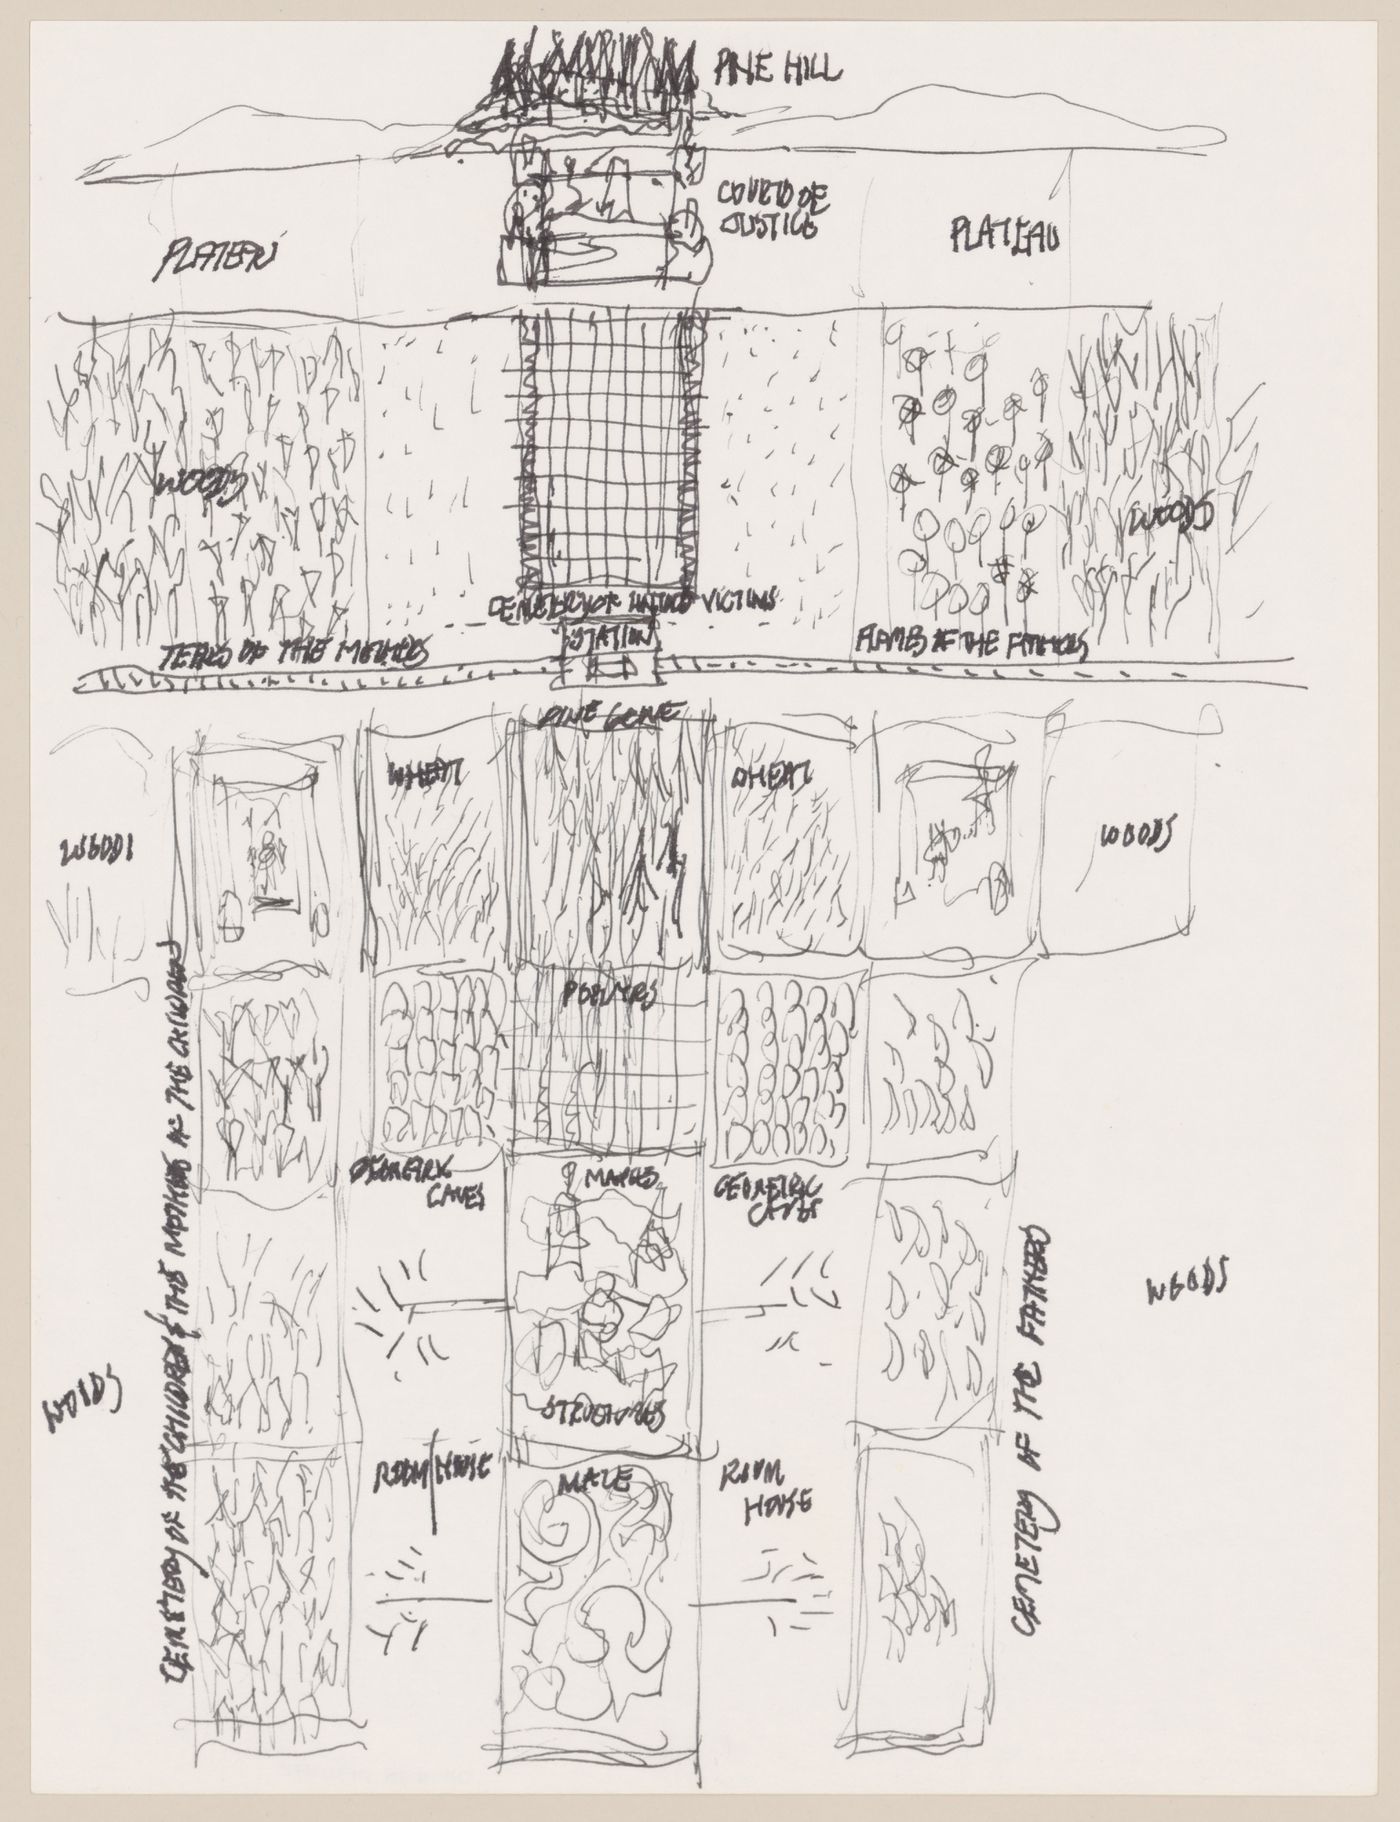 PINE HILL
COURT OF
JUSTICE
PLATEAU
PLATEAU
WOODS
WOODS
CEMETERY OF VICTIMS
STATION
TEARS OF THE MOTHERS
FLAMES OF THE FATHERS
PINE GROVE
WHEAT
WHEAT
WOODS
WOODS
POPLARS
GEOMETRIC
CAVES
MAPLES
GEOMETRIC
CAVES
WOODS
WOODS
STRUCTURES
ROOM HOUSE
MAZE
ROOM
HOUSE
CEMETERY OF THE CHILDREN & THE MOTHERS OF THE CHILDREN
CEMETERY OF THE FATHERS